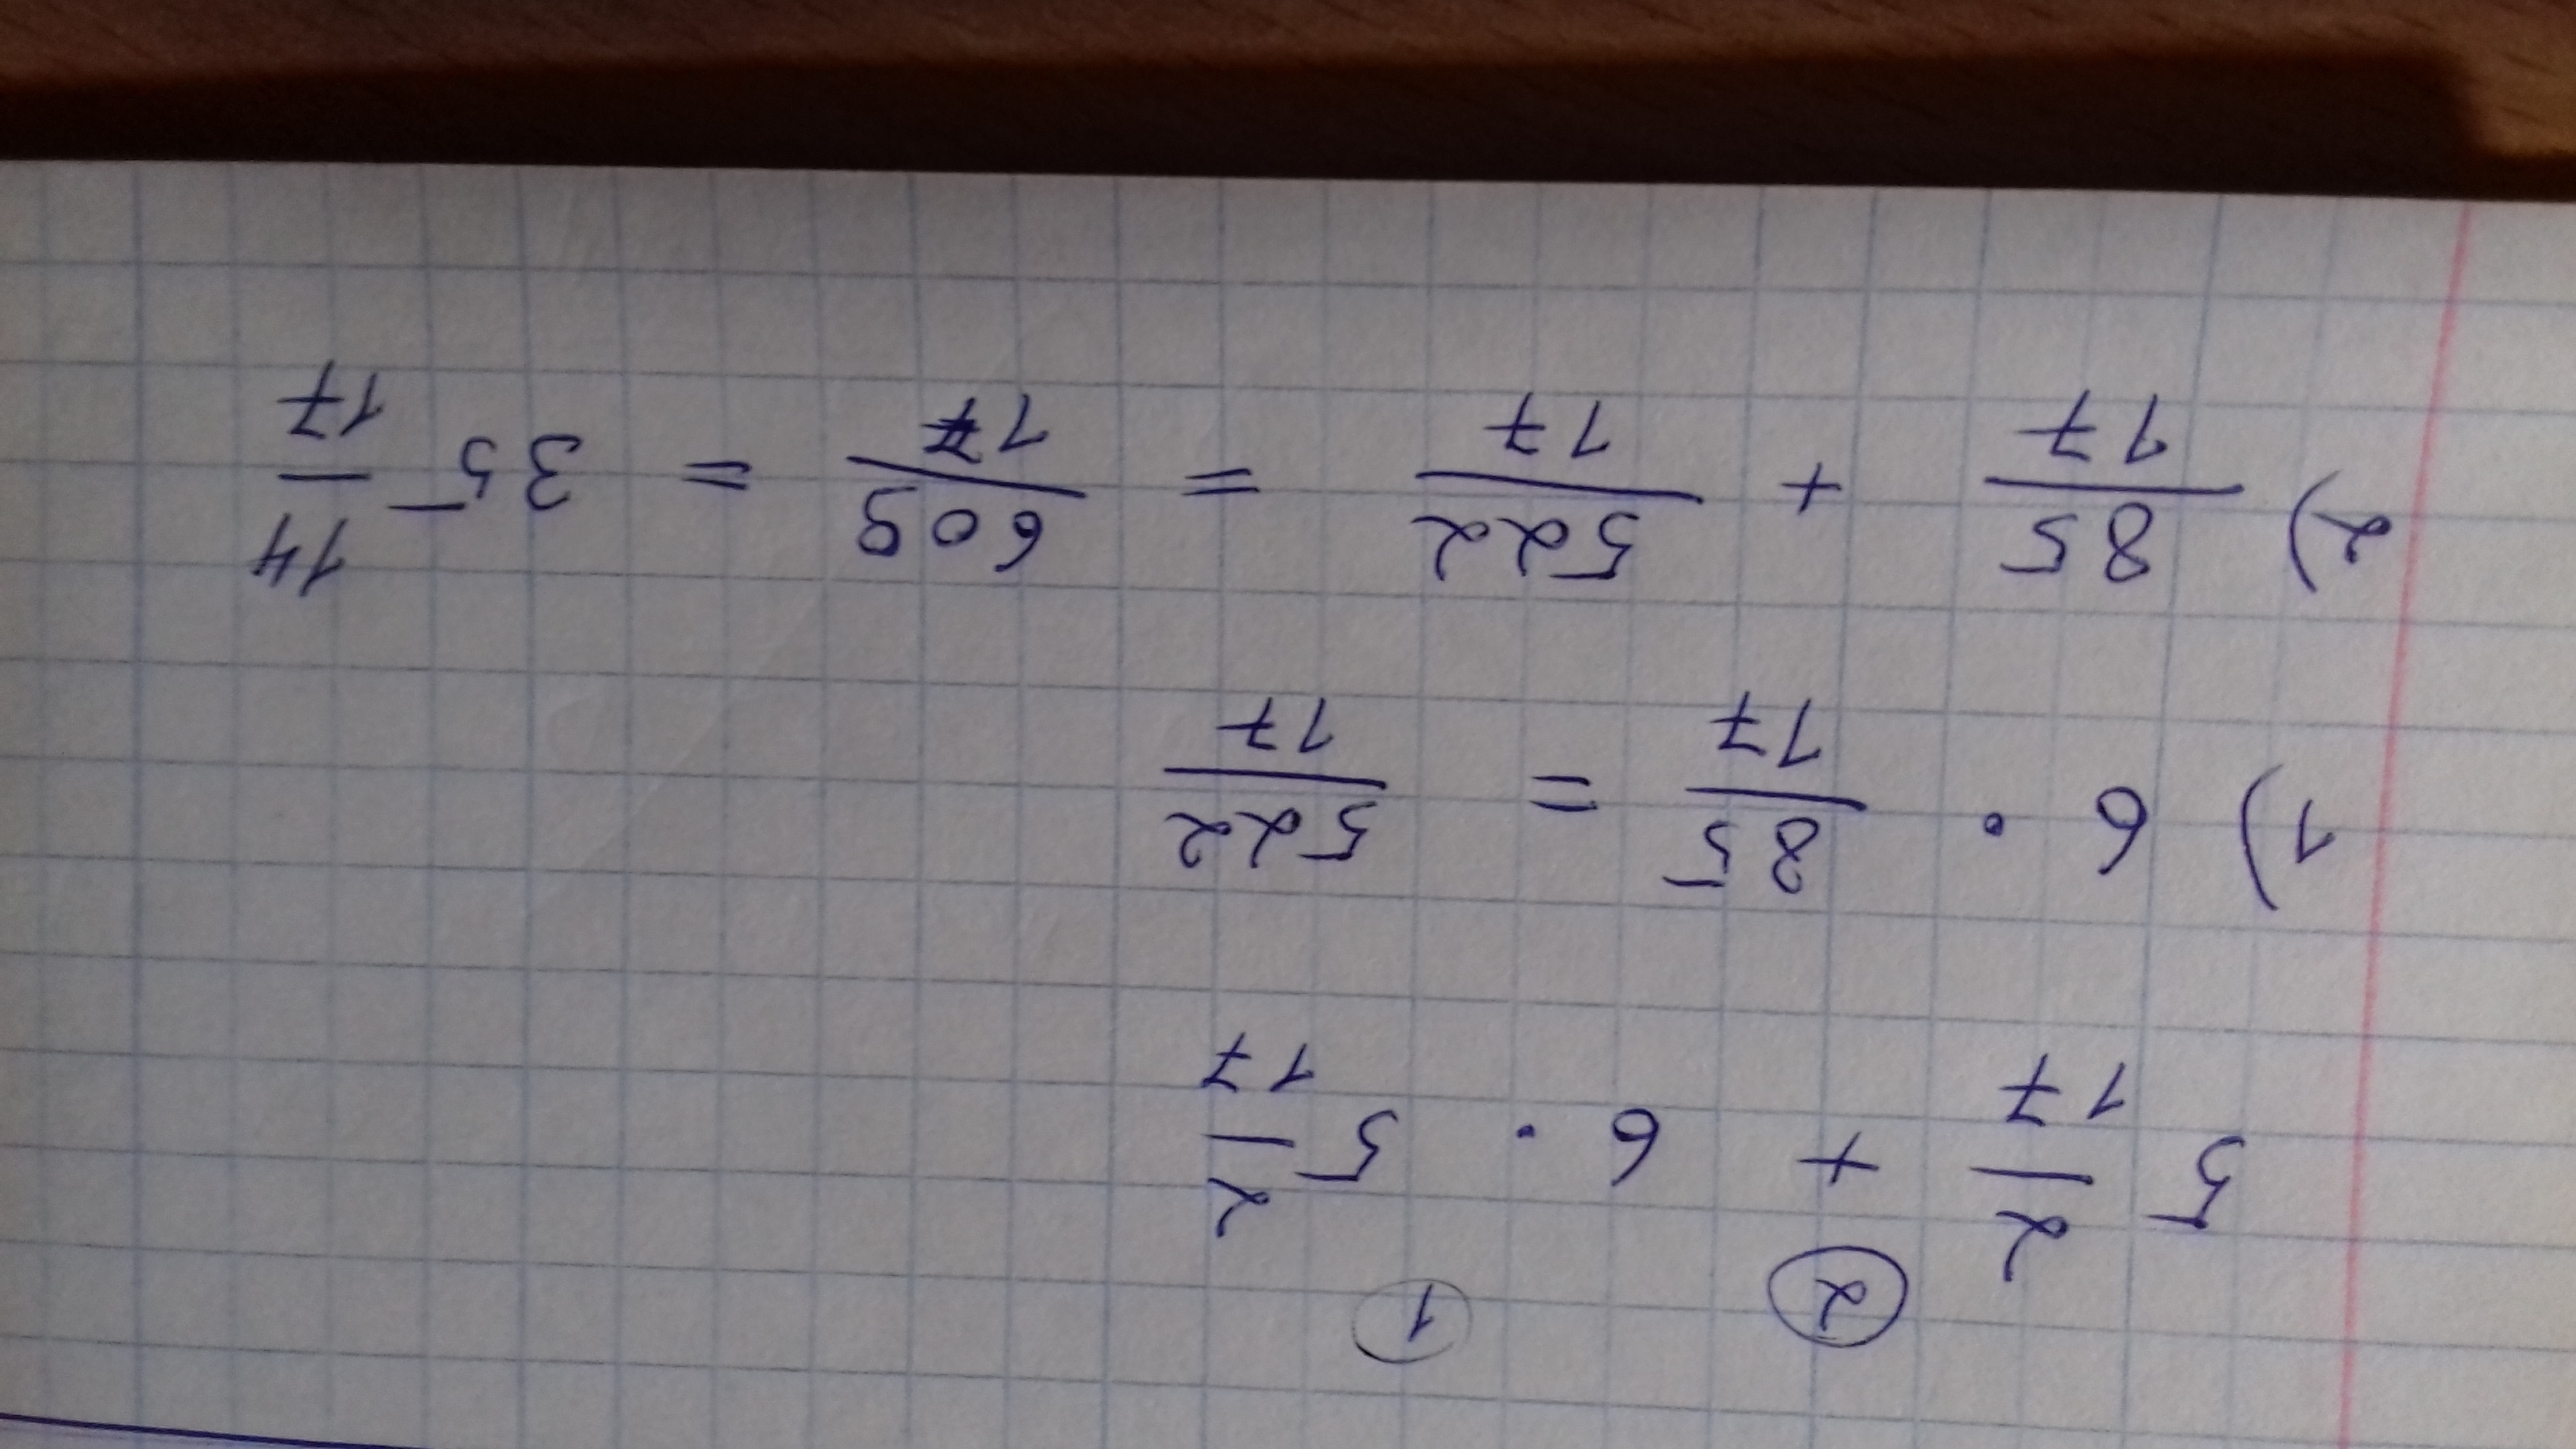 ② ①
5 2/17 + 6 · 5 2/17
1) 6 · 85/17 = 522/17
2) 85/17 + 522/17 = 609/17 = 35 14/17